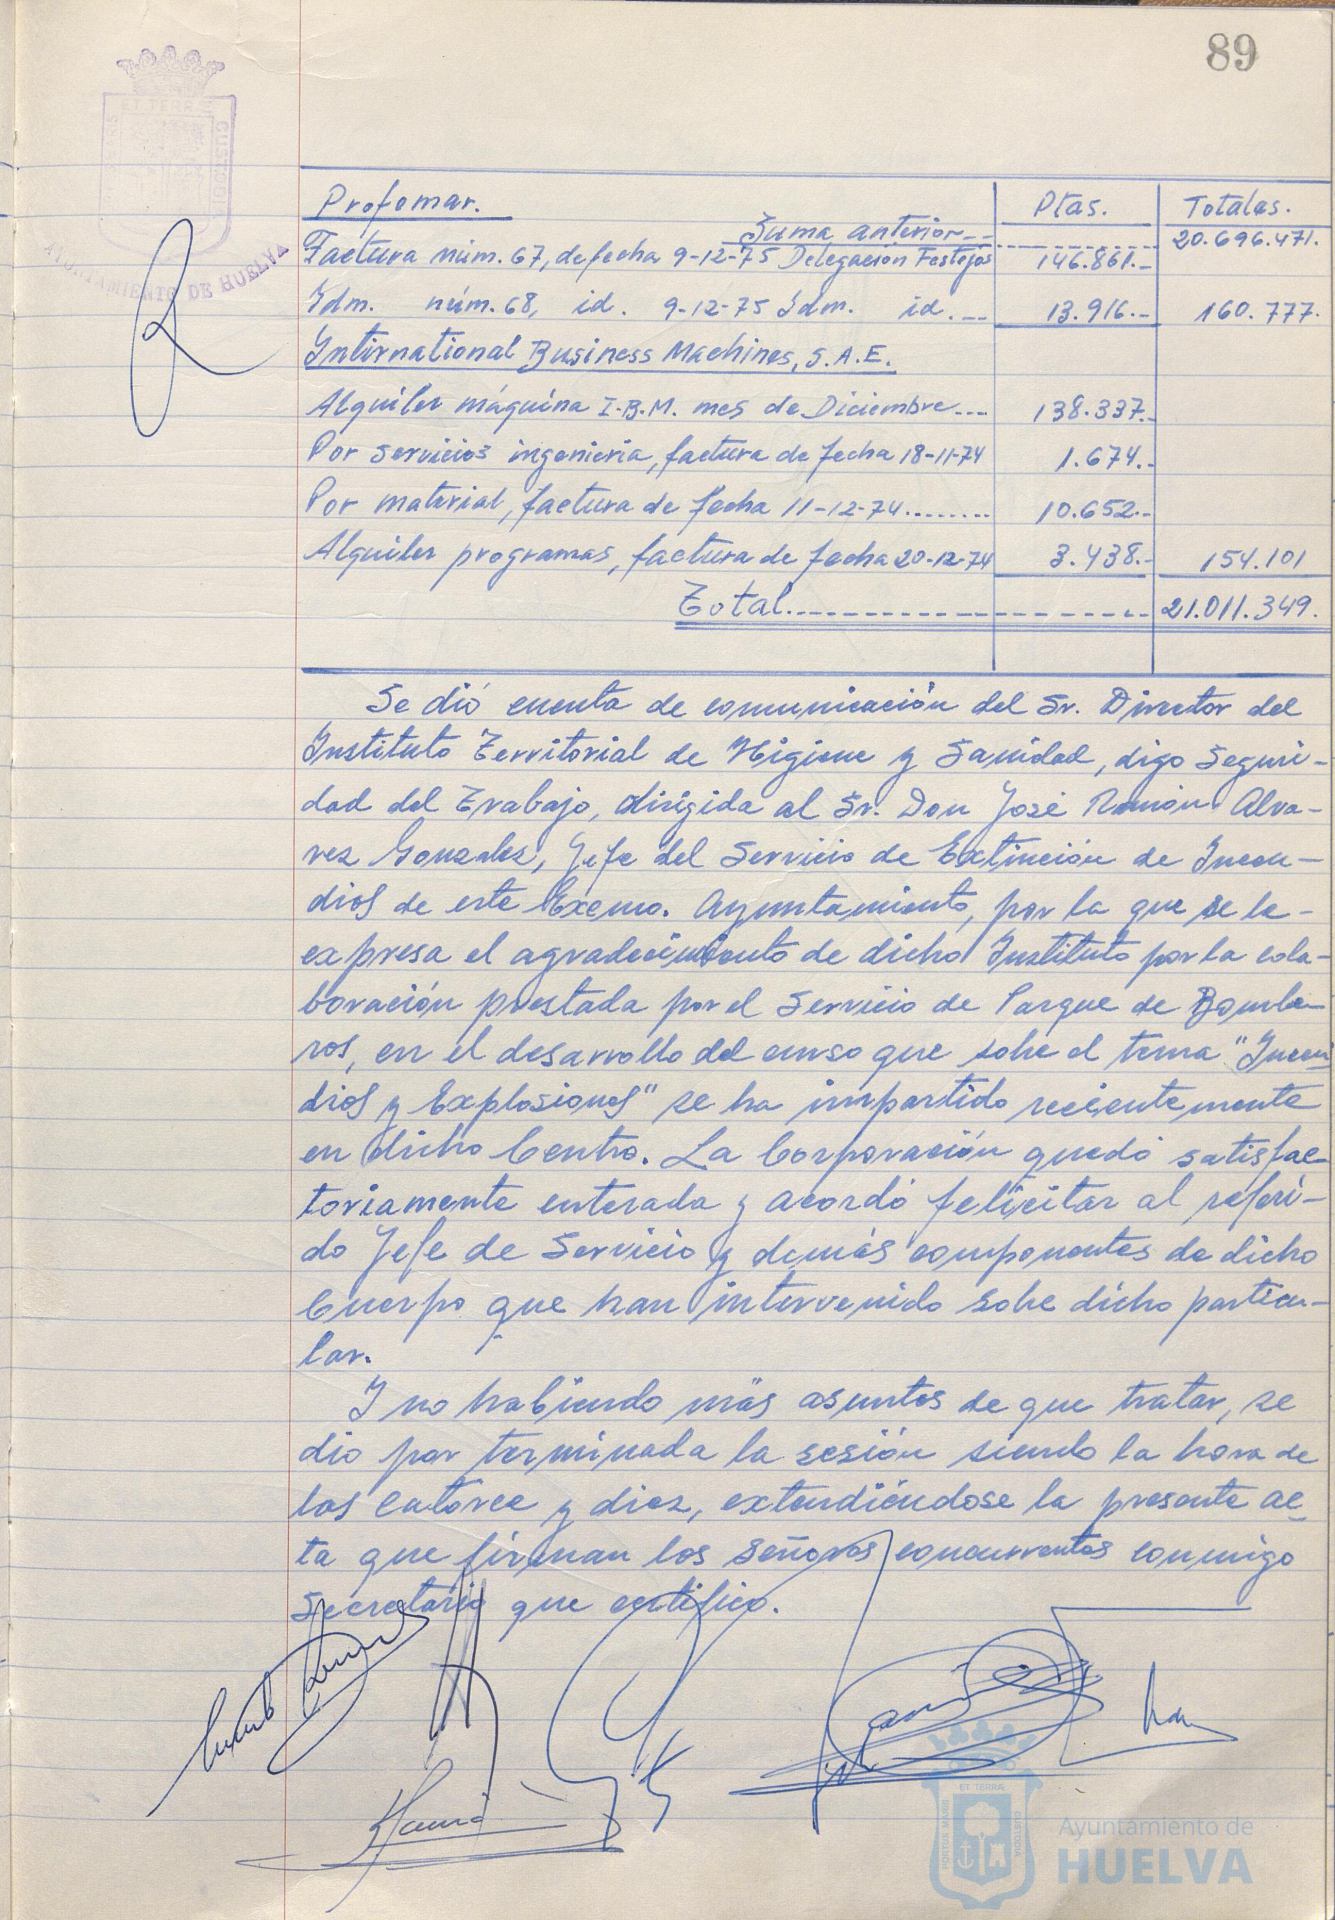 89
ET TERRA
CUSTODIA
AYUNTAMIENTO DE HUELVA
Profomar. Ptas. Totales.
Suma anterior 20.696.471.
Factura núm. 67, de fecha 9-12-75 Delegación Festejos 146.861.-
Idm. núm. 68, id. 9-12-75 Idm. id. 13.916.- 160.777.
International Business Machines, S.A.E.
Alquiler máquina I.B.M. mes de Diciembre.... 138.337.-
Por servicios ingenieria, factura de fecha 18-11-74 1.674.-
Por material, factura de fecha 11-12-74........ 10.652.-
Alquiler programas, factura de fecha 20-12-74 3.438.- 154.101
Total............ 21.011.349.
Se dió cuenta de comunicación del Sr. Director del
Instituto Territorial de Higiene y Sanidad, digo Seguri-
dad del Trabajo, dirigida al Sr. Don José Ramón Alva-
rez Gonzalez, Jefe del Servicio de Extinción de Incen-
dios de este Excmo. Ayuntamiento, por la que se le-
expresa el agradecimiento de dicho Instituto por la cola-
boración prestada por el Servicio de Parque de Bombe-
ros, en el desarrollo del curso que sobre el tema "Incen-
dios y Explosiones" se ha impartido recientemente
en dicho Centro. La Corporación quedó satisfac-
toriamente enterada y acordó felicitar al referi-
do Jefe de Servicio y demás componentes de dicho
Cuerpo que han intervenido sobre dicho particu-
lar.
Y no habiendo más asuntos de que tratar, se
dio por terminada la sesión siendo la hora de
las catorce y diez, extendiéndose la presente ac-
ta que firman los señores concurrentes conmigo
Secretario que certifico.
PORTUS MARIS ET TERRAE CUSTODIA
Ayuntamiento de
HUELVA